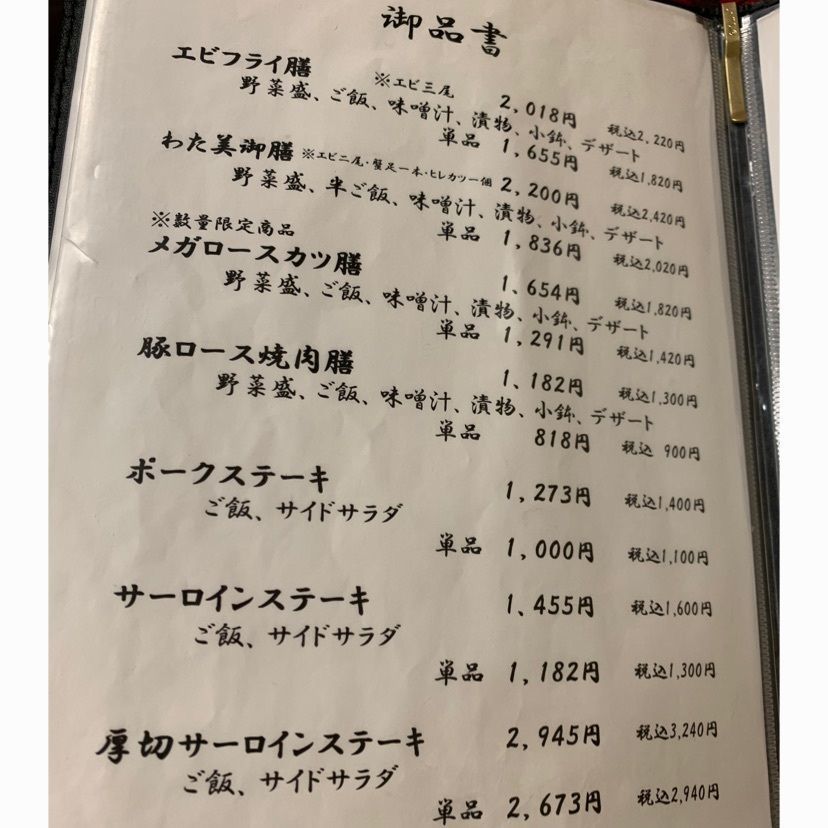 御品書
エビフライ膳 ※エビ三尾 2,018円 税込2,220円
野菜盛、ご飯、味噌汁、漬物、小鉢、デザート
単品 1,655円 税込1,820円
わた美御膳 ※エビ二尾・蟹足一本・ヒレカツ一個 2,200円 税込2,420円
野菜盛、半ご飯、味噌汁、漬物、小鉢、デザート
単品 1,836円 税込2,020円
※数量限定商品
メガロースカツ膳 1,654円 税込1,820円
野菜盛、ご飯、味噌汁、漬物、小鉢、デザート
単品 1,291円 税込1,420円
豚ロース焼肉膳 1,182円 税込1,300円
野菜盛、ご飯、味噌汁、漬物、小鉢、デザート
単品 818円 税込 900円
ポークステーキ 1,273円 税込1,400円
ご飯、サイドサラダ
単品 1,000円 税込1,100円
サーロインステーキ 1、455円 税込1,600円
ご飯、サイドサラダ
単品 1,182円 税込1,300円
厚切サーロインステーキ 2,945円 税込3,240円
ご飯、サイドサラダ
単品 2,673円 税込2,940円